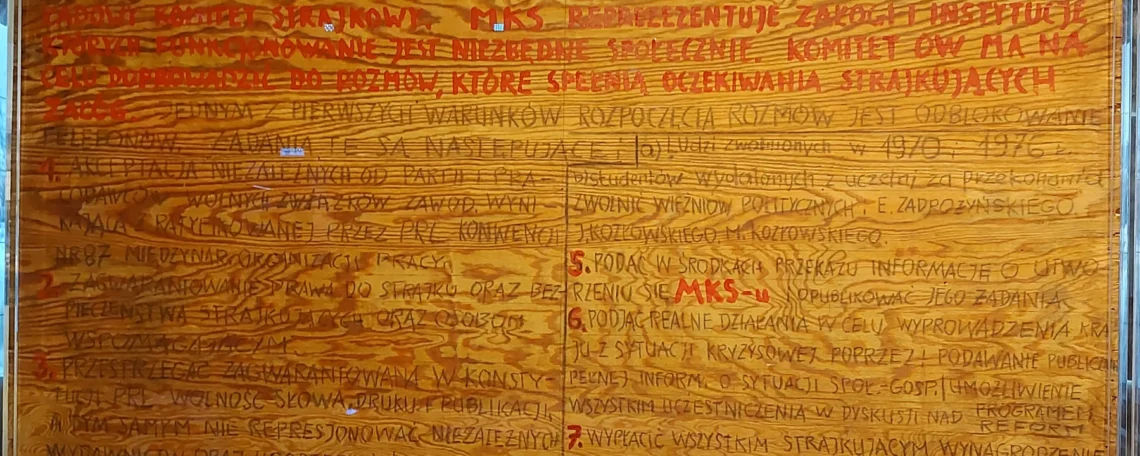 KOMITET STRAJKOWY. MKS REPREZENTUJE ZAŁOGI I INSTYTUCJE
KTÓRYCH FUNKCJONOWANIE JEST NIEZBĘDNE SPOŁECZNIE. KOMITET ÓW MA NA
CELU DOPROWADZIĆ DO ROZMÓW, KTÓRE SPEŁNIĄ OCZEKIWANIA STRAJKUJĄCYCH
ZAŁÓG. JEDNYM Z PIERWSZYCH WARUNKÓW ROZPOCZĘCIA ROZMÓW JEST ODBLOKOWANIE
TELEFONÓW. ŻĄDANIA TE SĄ NASTĘPUJĄCE:
1. AKCEPTACJA NIEZALEŻNYCH OD PARTII I PRA-
CODAWCÓW WOLNYCH ZWIĄZKÓW ZAWOD. WYNI-
KAJĄCA Z RATYFIKOWANEJ PRZEZ PRL KONWENCJI
NR 87 MIĘDZYNAR. ORGANIZACJI PRACY.
2. ZAGWARANTOWANIE PRAWA DO STRAJKU ORAZ BEZ-
PIECZEŃSTWA STRAJKUJĄCYCH ORAZ OSOBOM
WSPOMAGAJĄCYM.
3. PRZESTRZEGAĆ ZAGWARANTOWANĄ W KONSTY-
TUCJI PRL WOLNOŚĆ SŁOWA, DRUKU I PUBLIKACJI,
A TYM SAMYM NIE REPRESJONOWAĆ NIEZALEŻNYCH
a) Ludzi zwolnionych w 1970 i 1976 r.
b) studentów wydalonych z uczelni za przekonania
ZWOLNIĆ WIĘŹNIÓW POLITYCZNYCH: E. ZADROŻYŃSKIEGO,
J. KOZŁOWSKIEGO, M. KOZŁOWSKIEGO.
5. PODAĆ W ŚRODKACH PRZEKAZU INFORMACJĘ O UTWO-
RZENIU SIĘ MKS-u I OPUBLIKOWAĆ JEGO ŻĄDANIA.
6. PODJĄĆ REALNE DZIAŁANIA W CELU WYPROWADZENIA KRA
JU Z SYTUACJI KRYZYSOWEJ POPRZEZ: PODAWANIE PUBLICZN
PEŁNEJ INFORM. O SYTUACJI SPOŁ.-GOSP. UMOŻLIWIENIE
WSZYSTKIM UCZESTNICZENIA W DYSKUSJI NAD PROGRAMEM
REFORM
7. WYPŁACIĆ WSZYSTKIM STRAJKUJĄCYM WYNAGRODZENIE